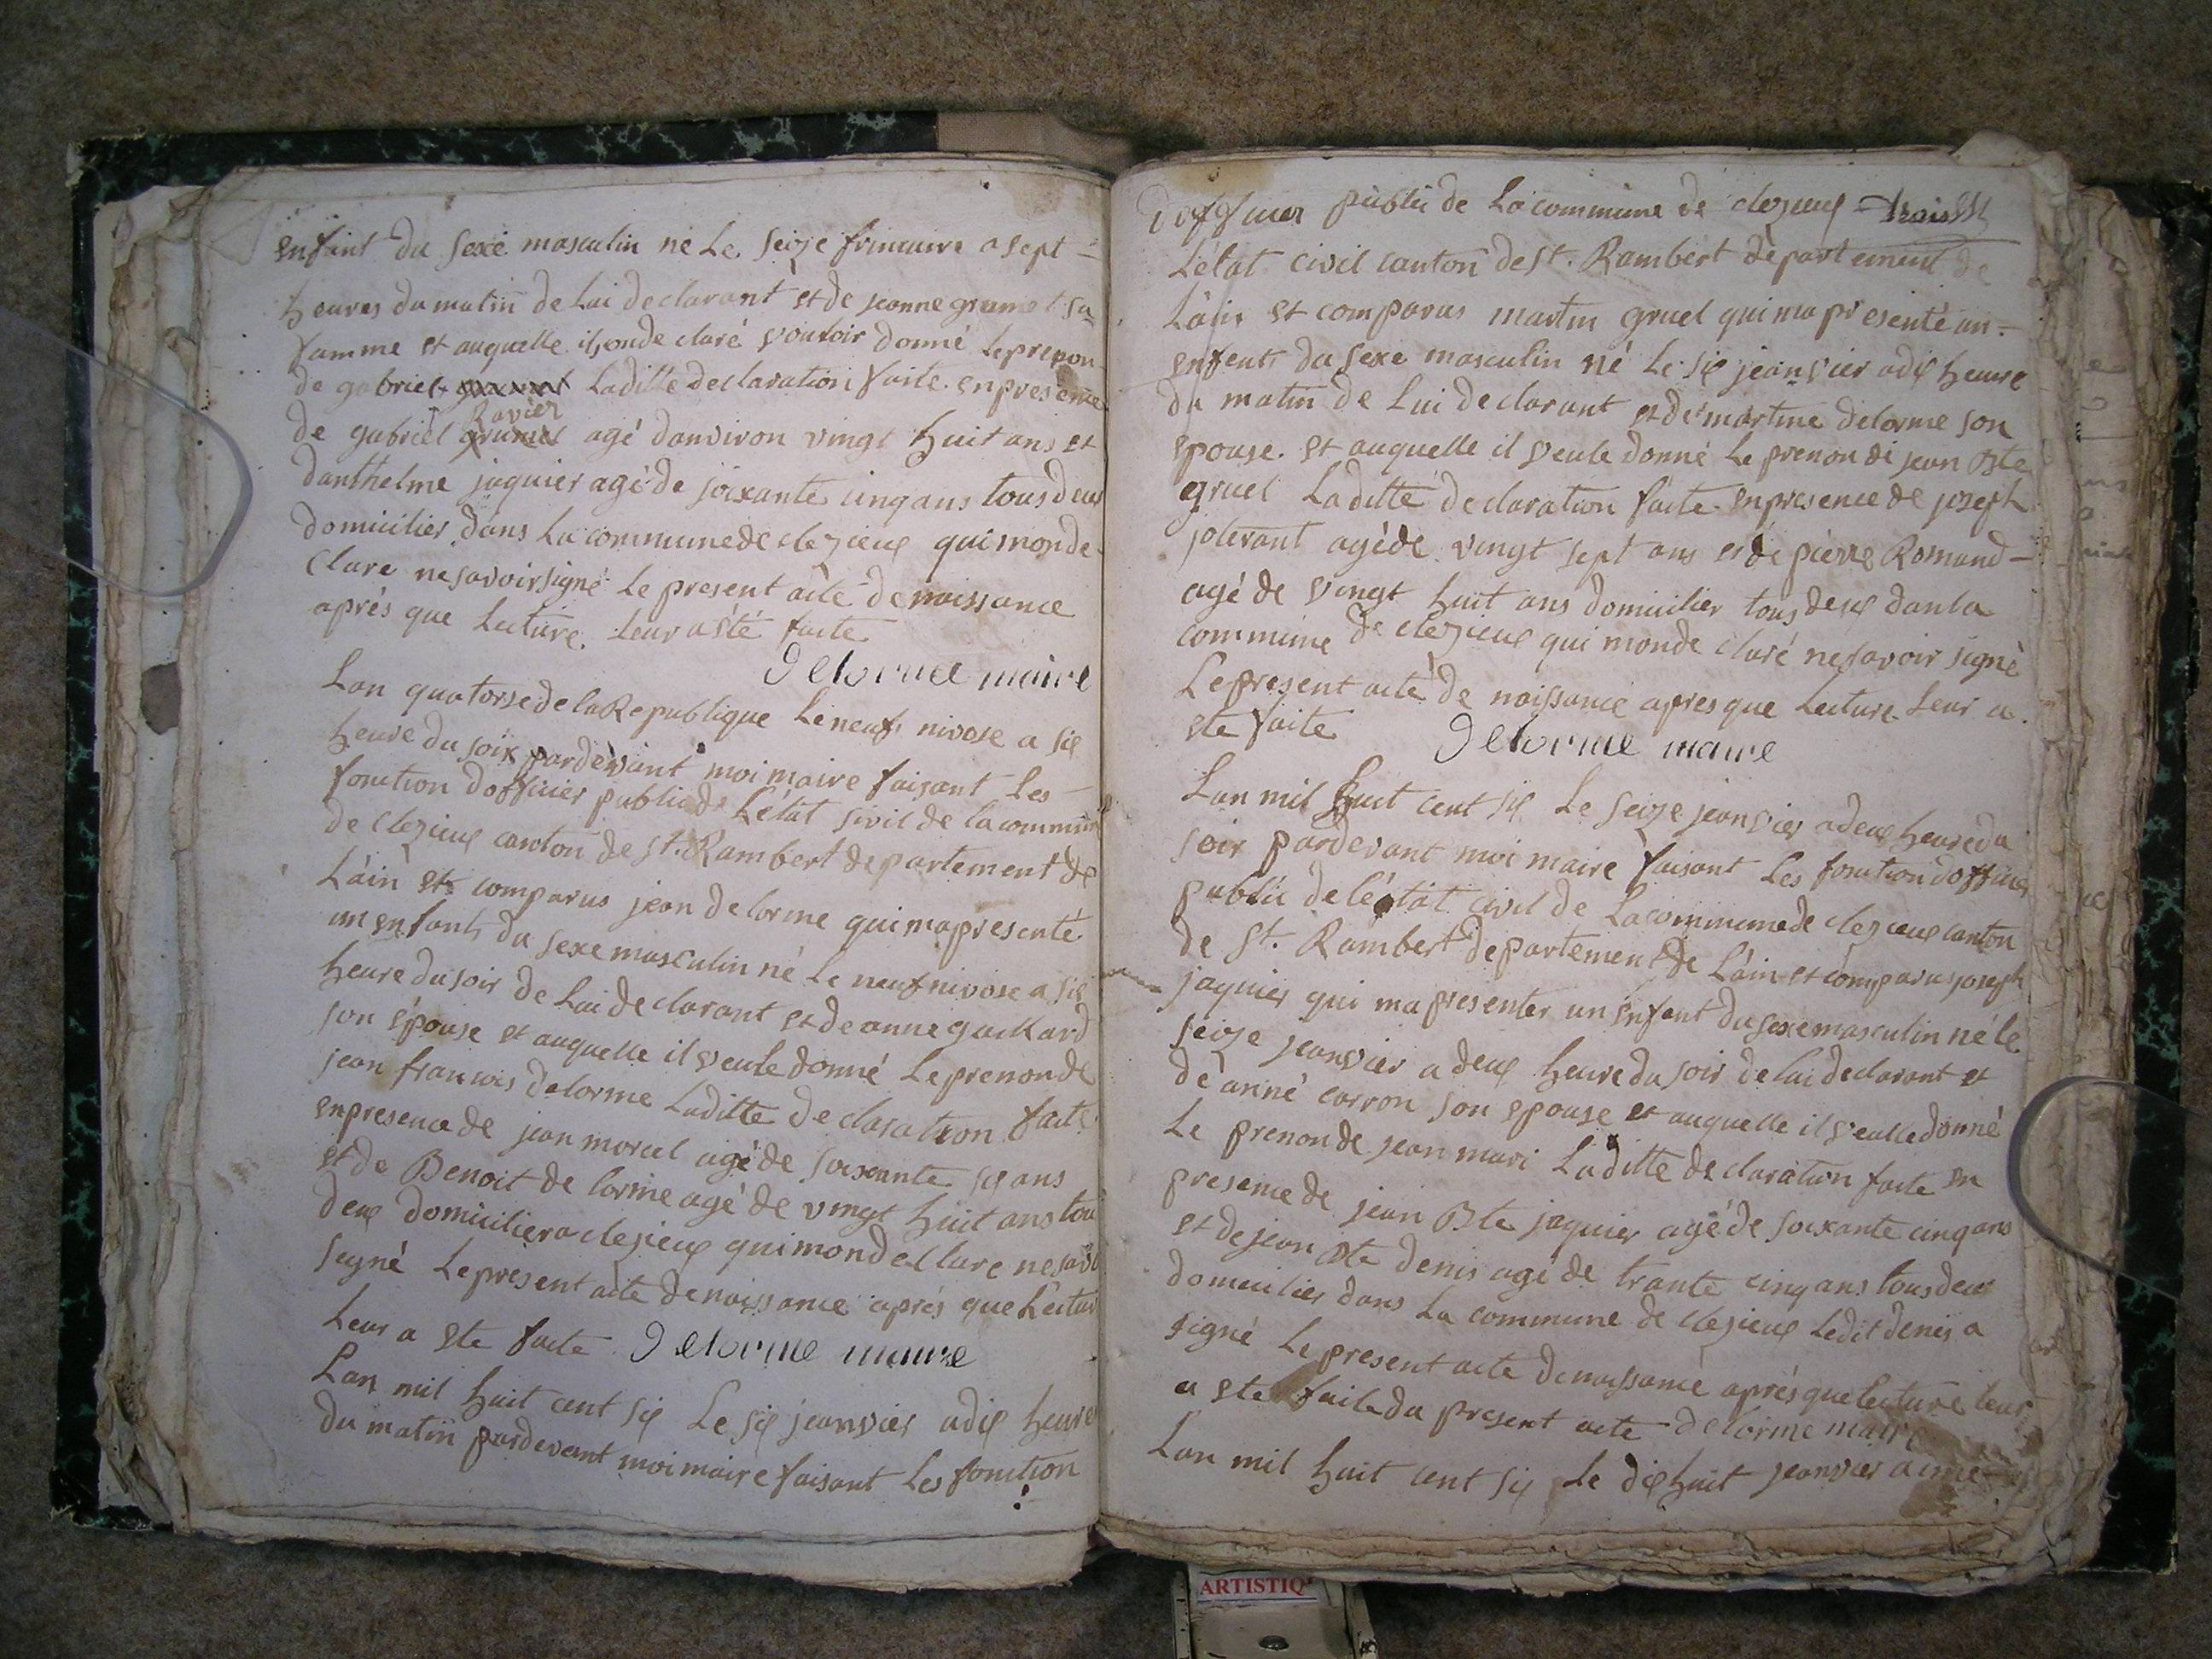 enfant du sexe masculin né Le seize frimaire a sept
heures du matin de Lui declarant et de jeanne grumet sa
famme et auquelle il onde claré vouloir donné Leprenon
de gabriel Laditte declaration faite en presence
de gabriel Ravier agé danviron vingt huit ans et
danthelme jaquier agé de soixante cinq ans tous deux
domicilier dans La commune de clezieux qui monde
clare ne savoir signé Le present acte de naissance
aprés que Lecture Leur a été faite
Delorme maire
Lan quatorse de la Republique Le neuf nivose a six
heure du soir pardevant moi maire faisant Les
fonction dofficier public de L'état sivil de la commune
de clezieux canton de St. Rambert departement de
L'ain est comparus jean delorme qui ma presenté
un enfants du sexe masculin né Le neuf nivose a six
heure du soir de Lui declarant et de anne guikard
son épouse et auquelle il veule donné Le prenon de
jean francois delorme Laditte declaration faite
en presence de jean morcel agé de soixante six ans
et de Benoit de lorme agé de vingt huit ans tou
deux domicilier a clezieux qui monde clare ne savoi
signé Le present acte de naissance aprés que Lectur
Leur a ete faite Delorme maire
Lan mil huit cent six Le six jeanvier a dix heure
du matin pardevant moi maire faisant Les fonction
dofficier public de La commune de clezieux
L'état civil canton de St. Rambert departement de
L'ain et comparus martin gruel qui ma presenté un
enfents du sexe masculin né Le six jeanvier a dix heure
du matin de Lui declarant et de martine delorme son
epouse et auquelle il veule donné Le prenon de jean Bte
gruel Laditte declaration faite en presence de joseph
agé de vingt sept ans et de pierre Romand
agé de vingt huit ans domicilier tous deux dan la
commune de clezieux qui monde claré ne savoir signé
Le present acte de naissance apres que Lecture Leur a
ete faite Delorme maire
Lan mil huit cent six Le seize jeanvier a deux heure du
soir pardevant moi maire faisant Les fonction dofficier
public de l'état civil de La commune de clezieux canton
de St. Rambert departement de L'ain est comparus joseph
jaquier qui ma presenter un enfent du sexe masculin né le
seize jeanvier a deux heure du soir de lui declarant et
de anne carron son epouse et auquelle il veulle donné
Le prenon de jean mari Laditte declaration faite en
presence de jean Bte jaquier agé de soixante cinq ans
et de jean Bte denis agé de trante cinq ans tous deux
domicilier dans La commune de clezieux Ledit denis a
signé Le present acte de naissance aprés que lecture leur
a ete faite du present acte delorme maire
Lan mil huit cent six Le dix huit jeanvier a
ARTISTIQ